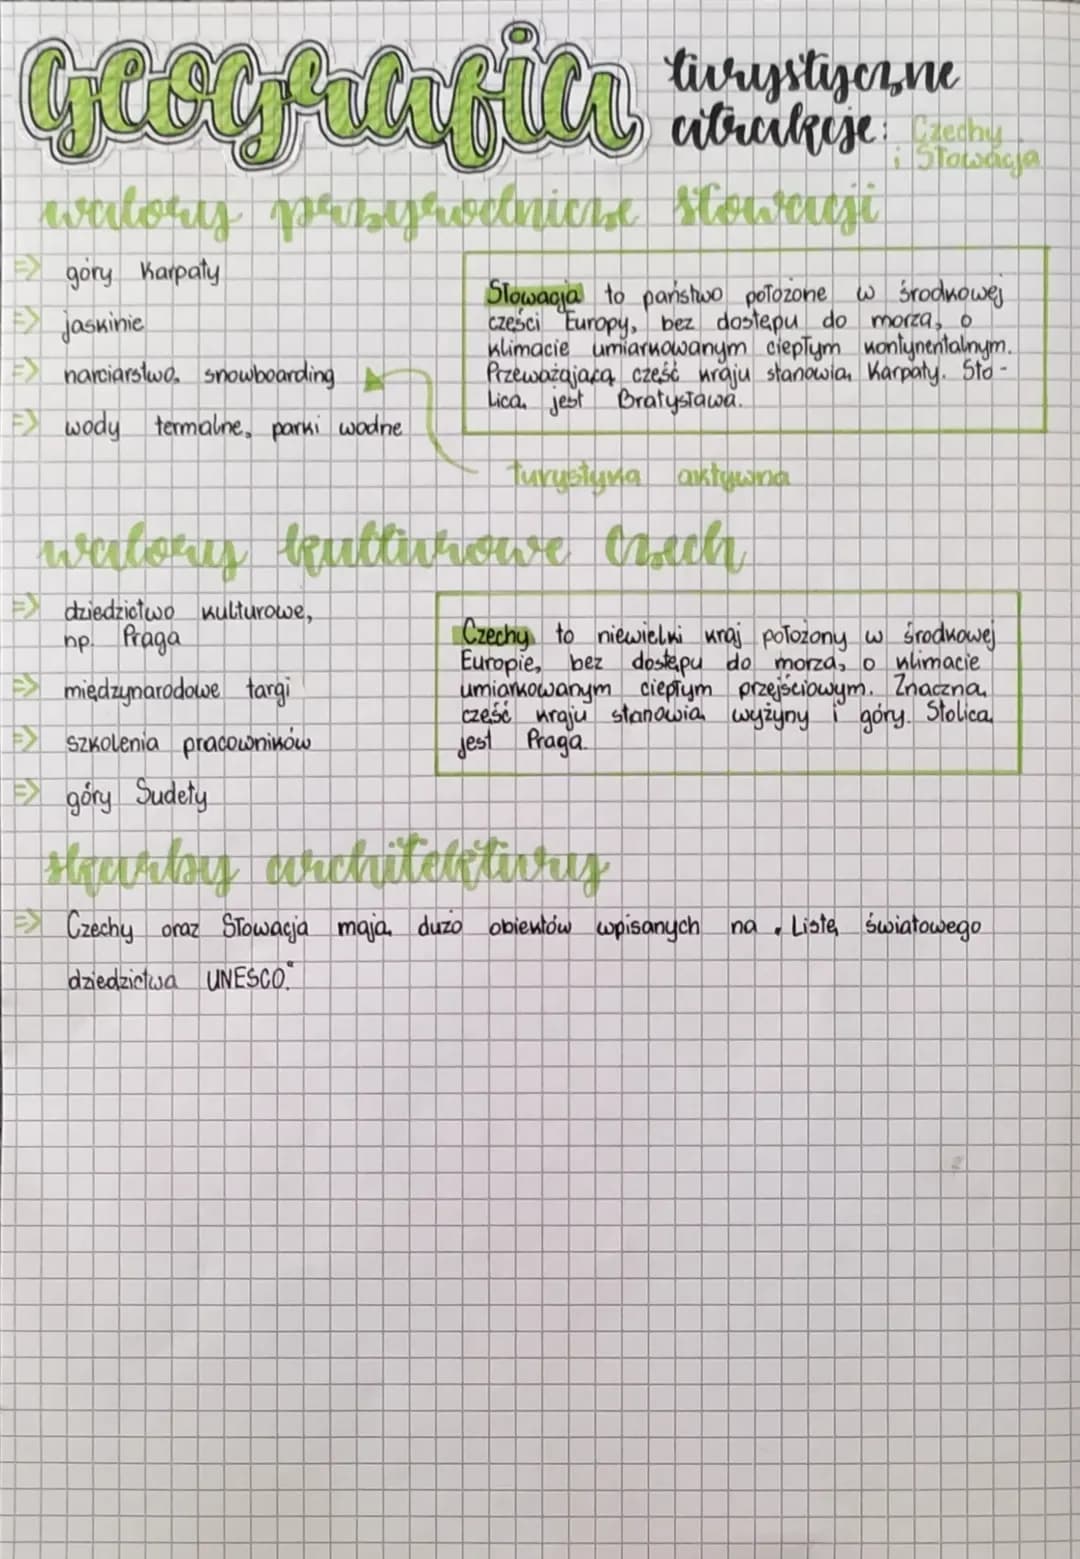 geografia
turystyczne
atrakcje: Czechy
i Słowacja
walory przyrodnicze Słowacji
=> góry Karpaty
=> jaskinie
=> narciarstwo, snowboarding
=> wody termalne, parki wodne
Słowacja to państwo położone w środkowej
części Europy, bez dostępu do morza, o
klimacie umiarkowanym ciepłym kontynentalnym.
Przeważającą część kraju stanowią Karpaty. Sto-
licą jest Bratysława.
turystyka aktywna
walory kulturowe Czech
=> dziedzictwo kulturowe,
np. Praga
=> międzynarodowe targi
=> szkolenia pracowników
=> góry Sudety
Czechy to niewielki kraj położony w środkowej
Europie, bez dostępu do morza, o klimacie
umiarkowanym ciepłym przejściowym. Znaczną
część kraju stanowią wyżyny i góry. Stolicą
jest Praga.
skarby architektury
=> Czechy oraz Słowacja mają dużo obiektów wpisanych na „Listę światowego
dziedzictwa UNESCO."